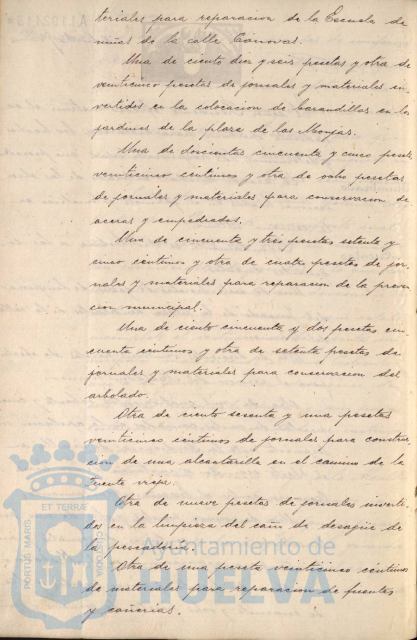 teriales para reparacion de la Escuela de
niñas de la calle Canovas.
Una de ciento diez y seis pesetas y otra de
veinticinco pesetas de jornales y materiales in-
vertidos en la colocacion de barandillas en los
jardines de la plaza de las Monjas.
Una de doscientas cincuenta y cinco pesetas
veinticinco centimos y otra de ocho pesetas
de jornales y materiales para conservacion de
aceras y empedrados.
Una de cincuenta y tres pesetas setenta y
cinco centimos y otra de cuatro pesetas de jor-
nales y materiales para reparacion de la preven
cion municipal.
Una de ciento cincuenta y dos pesetas cin
cuenta centimos y otra de setenta pesetas de
jornales y materiales para conservacion del
arbolado.
Otra de ciento sesenta y una pesetas
veinticinco centimos de jornales para construc
cion de una alcantarilla en el camino de la
Fuente vieja.
Otra de nueve pesetas de jornales inverti-
dos en la limpieza del caño de desague de
la pescaderia.
Otra de una peseta veinticinco centimos
de materiales para reparacion de fuentes
y cañerias.
PORTUS MARIS
ET TERRÆ
CUSTODIA
Ayuntamiento de
HUELVA